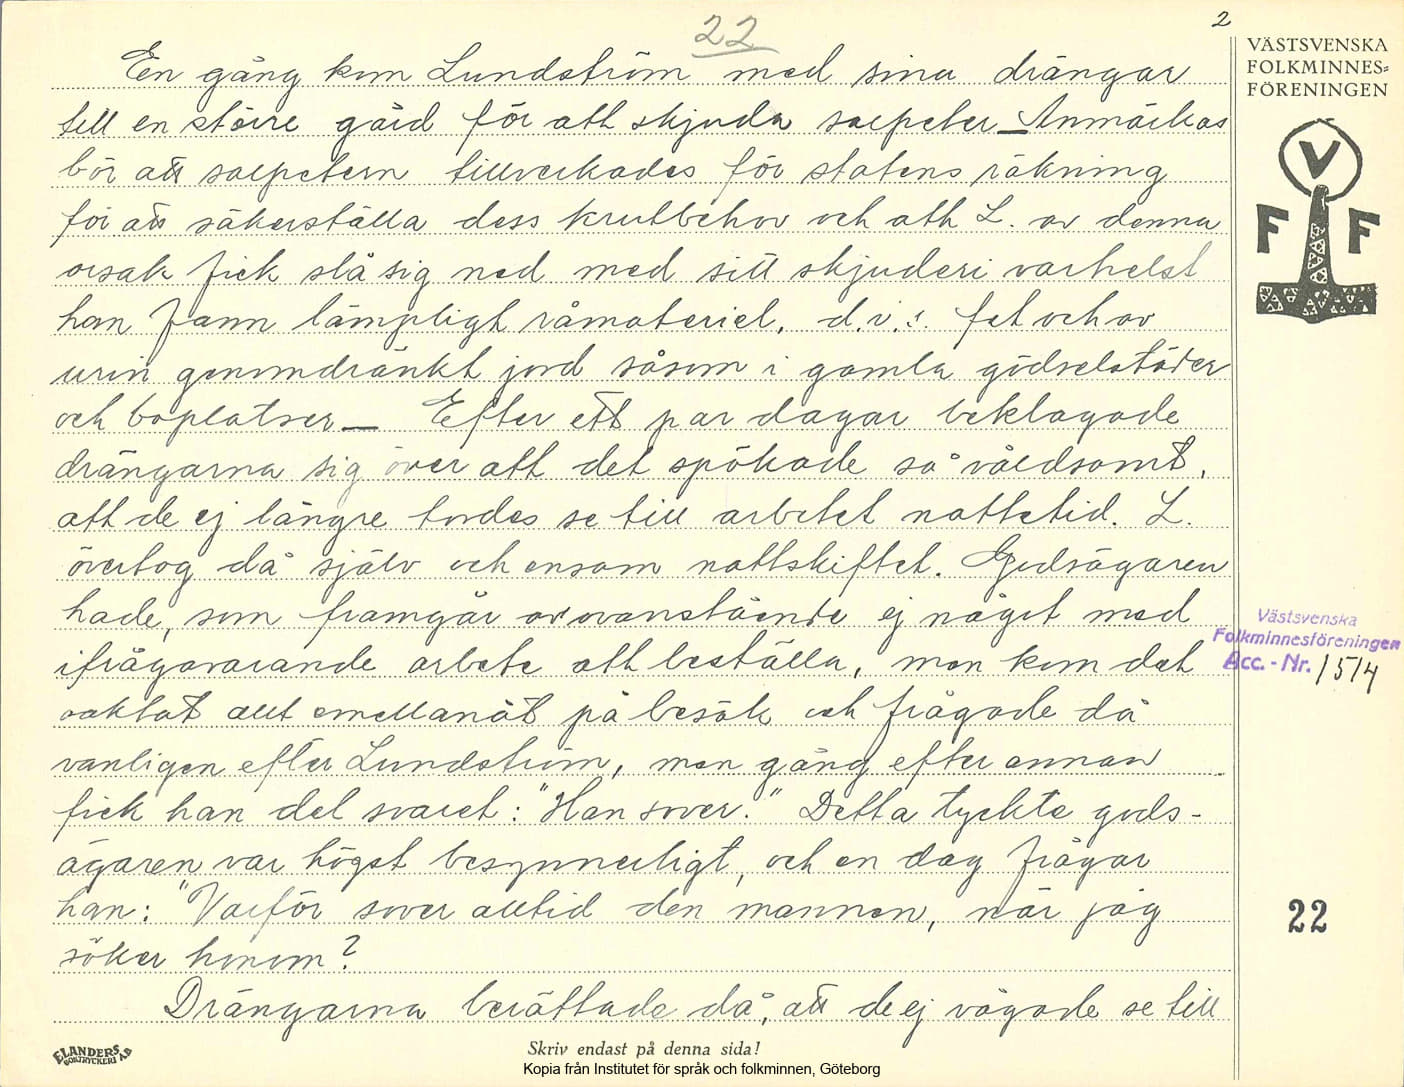 22
2
En gång kom Lundström med sina drängar
till en större gård för att skjuda salpeter – Anmärkas
bör att salpetern tillverkades för statens räkning
för att säkerställa dess krutbehov och att L. av denna
orsak fick slå sig ned med sitt skjuderi varhelst
han fann lämpligt råmateriel, d.v.s. fet och av
urin genomdränkt jord såsom i gamla gödselstäder
och boplatser – Efter ett par dagar beklagade
drängarna sig över att det spökade så våldsamt,
att de ej längre tordes se till arbetet nattetid. L.
övertog då själv och ensam nattskiftet. Godsägaren
hade, som framgår av ovanstående ej något med
ifrågavarande arbete att beställa, men kom det
oaktat allt emellanåt på besök och frågade då
vanligen efter Lundström, men gång efter annan
fick han det svaret: "Han sover." Detta tyckte gods-
ägaren var högst besynnerligt, och en dag frågar
han: "Varför sover alltid den mannen, när jag
söker honom?
Drängarna berättade då, att de ej vågade se till
VÄSTSVENSKA
FOLKMINNES=
FÖRENINGEN
V
F F
Västsvenska
Folkminnesföreningen
Acc. - Nr. 1514
22
ELANDERS
BOKTRYCKERI AB
Skriv endast på denna sida!
Kopia från Institutet för språk och folkminnen, Göteborg